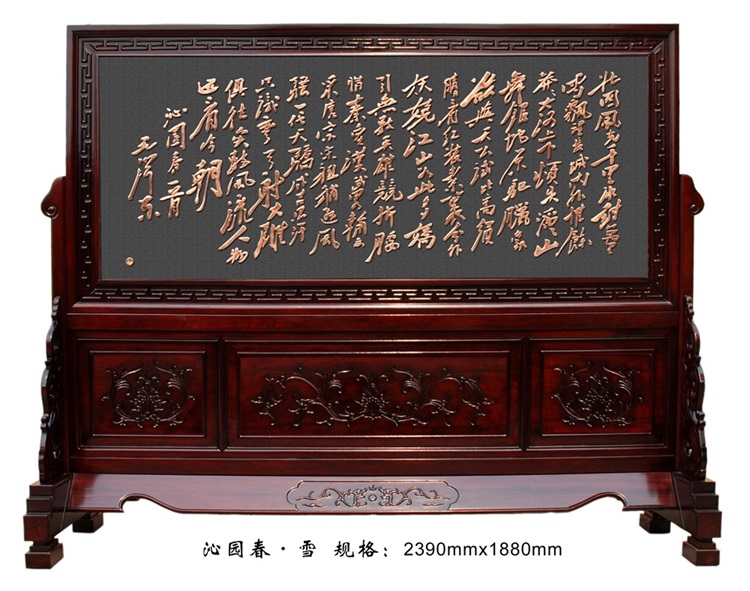 北国風光千里冰封万里
雪飘望长城内外惟餘
莽莽大河上下頓失滔滔山
舞銀蛇原驱腊象
欲與天公试比高须
晴日看红装素裹分外
妖娆江山如此多嬌
引無數英雄競折腰
惜秦皇漢武略输文
采唐宗宋祖稍逊風
騷一代天驕成吉思汗
只識彎弓射大雕
俱往矣數風流人物
还看今朝
沁园春一首
毛泽东
沁园春·雪 规格：2390mmx1880mm